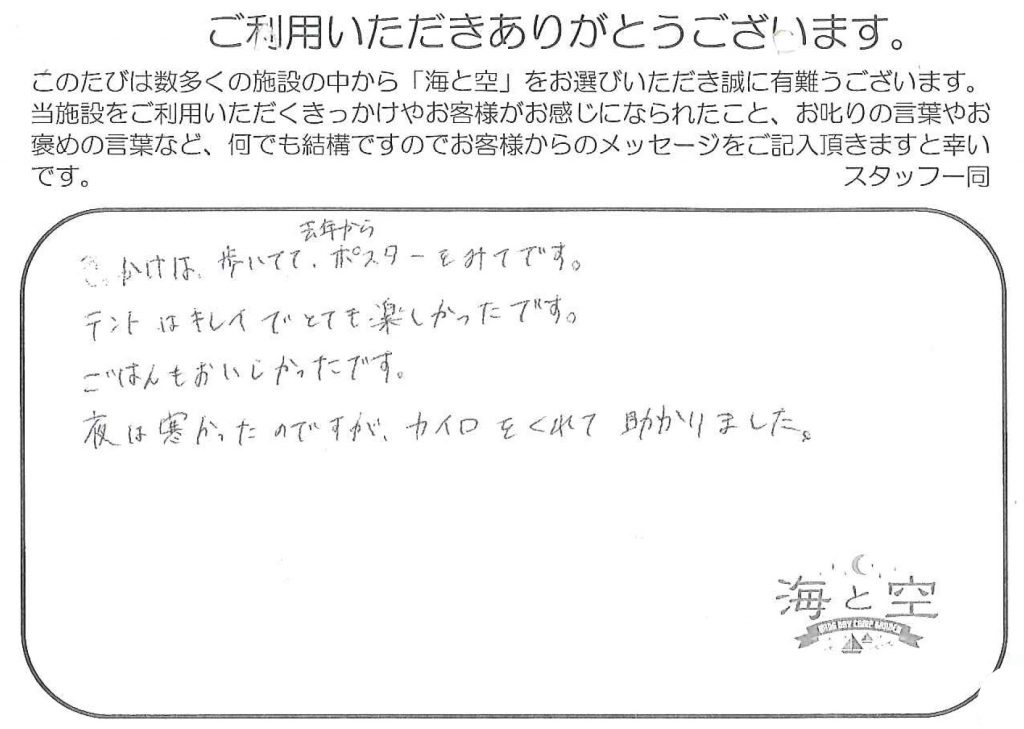 ご利用いただきありがとうございます。
このたびは数多くの施設の中から「海と空」をお選びいただき誠に有難うございます。
当施設をご利用いただくきっかけやお客様がお感じになられたこと、お叱りの言葉やお
褒めの言葉など、何でも結構ですのでお客様からのメッセージをご記入頂きますと幸い
です。
スタッフ一同
去年から
かけは、歩いてて、ポスターをみてです。
テントはキレイでとても楽しかったです。
ごはんもおいしかったです。
夜は寒かったのですが、カイロをくれて助かりました。
海と空
CAMP GARDEN